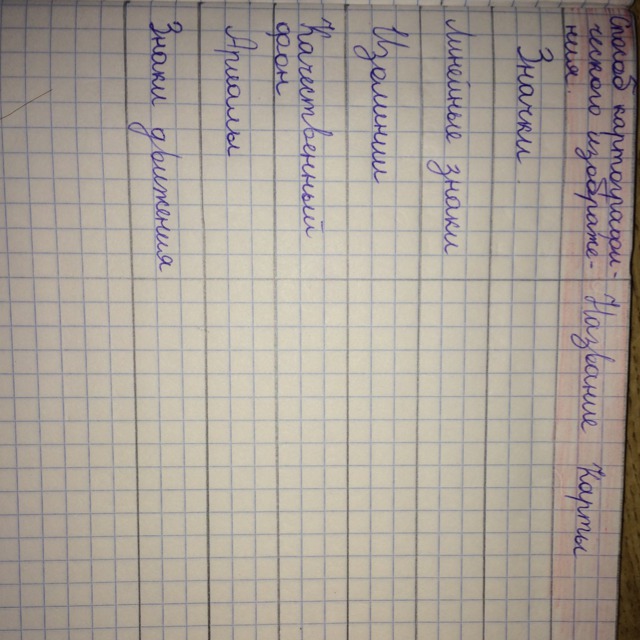 Способ картографи-
ческого изображе-
ния.
Название Карты
Значки
Линейные знаки
Изолинии
Качественный
фон
Ареалы
Знаки движения